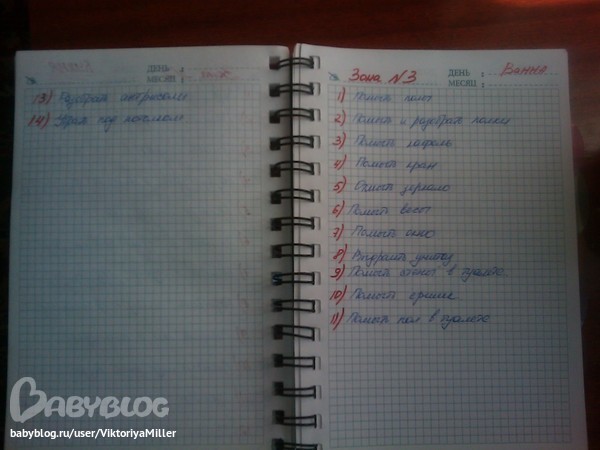 ДЕНЬ :
МЕСЯЦ :
13) Разобрать антресоли
14) Убрать под
Зона N3 ДЕНЬ : Ванна
МЕСЯЦ :
1) Помыть
2) Помыть и разобрать полки
3) Помыть кафель
4) Помыть кран
5) Отмыть зеркало
6) Помыть весы
7) Помыть окно
8) унитаз
9) Помыть в туалете
10) Помыть
11) Помыть пол в туалете
BABYBLOG
babyblog.ru/user/ViktoriyaMiller